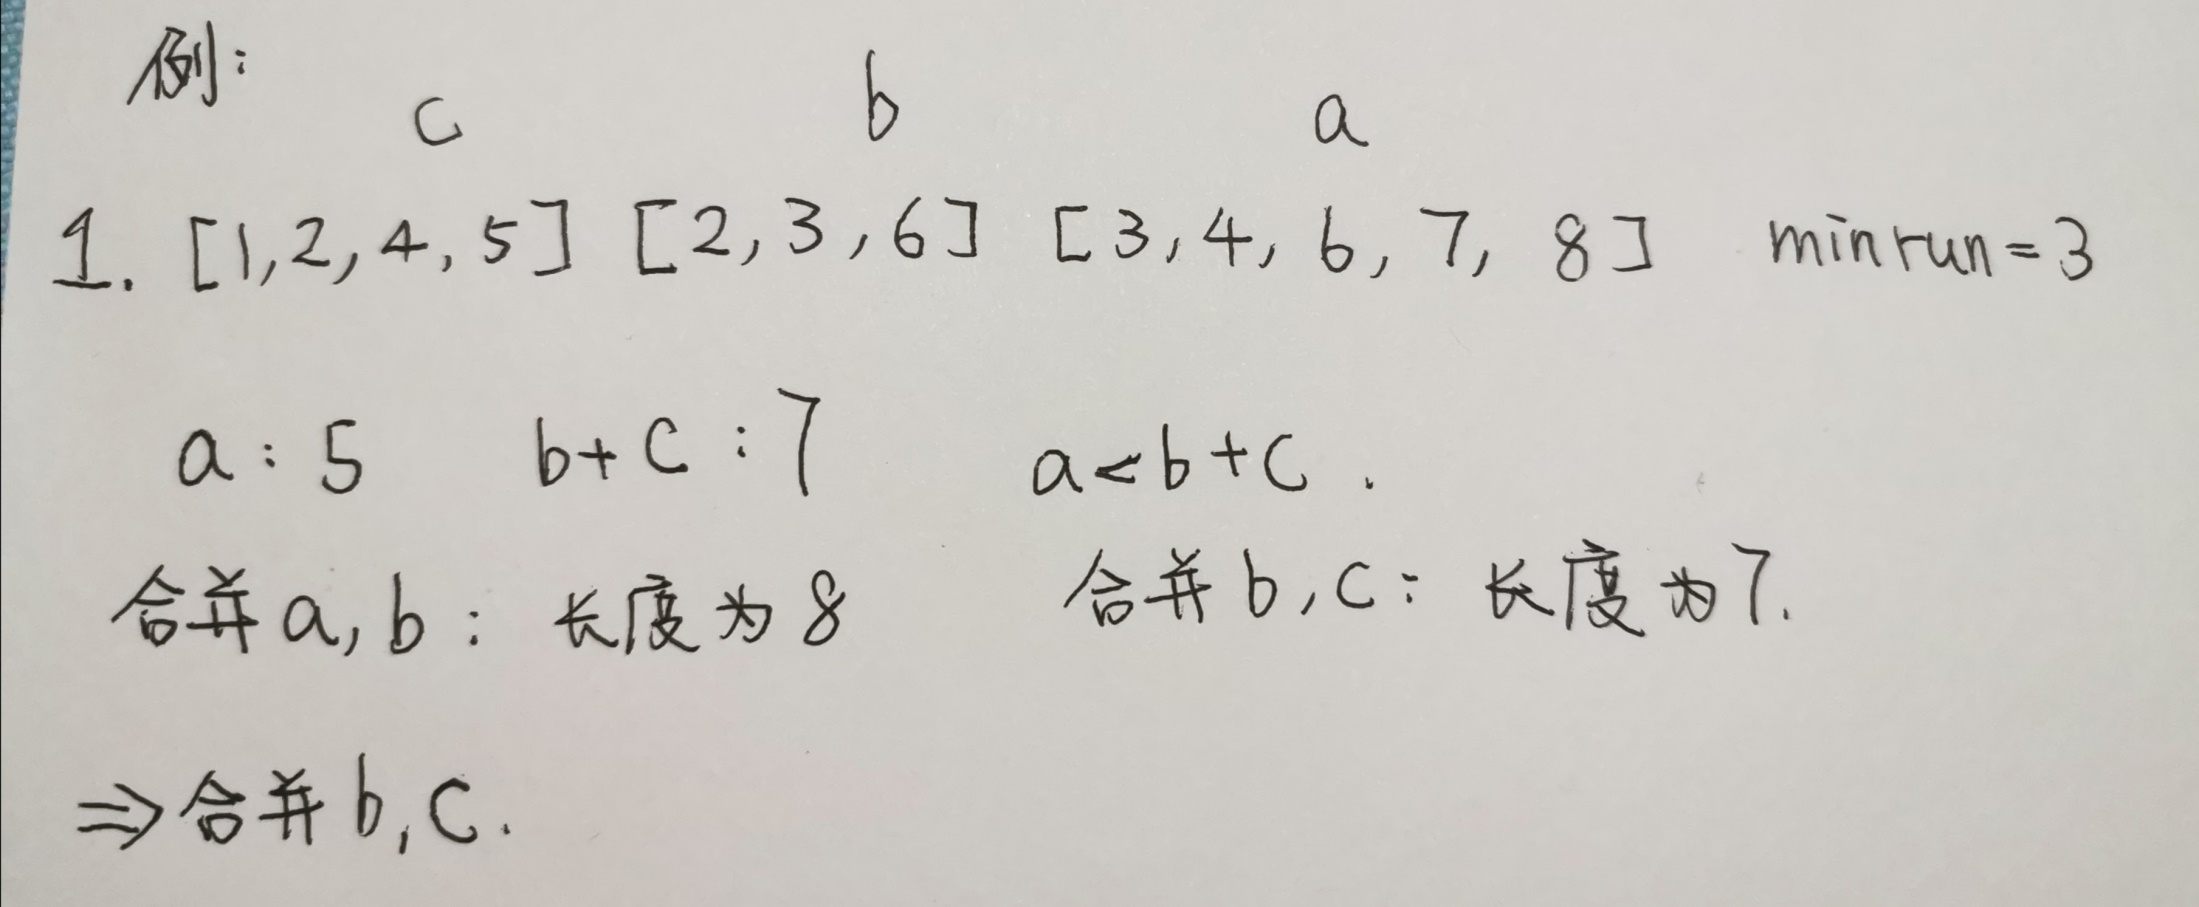 例:
c b a
1. [1,2,4,5] [2,3,6] [3,4,6,7,8] minrun=3
a:5 b+c:7 a<b+c.
合并a,b: 长度为8 合并b,c: 长度为7.
⇒合并b,c.